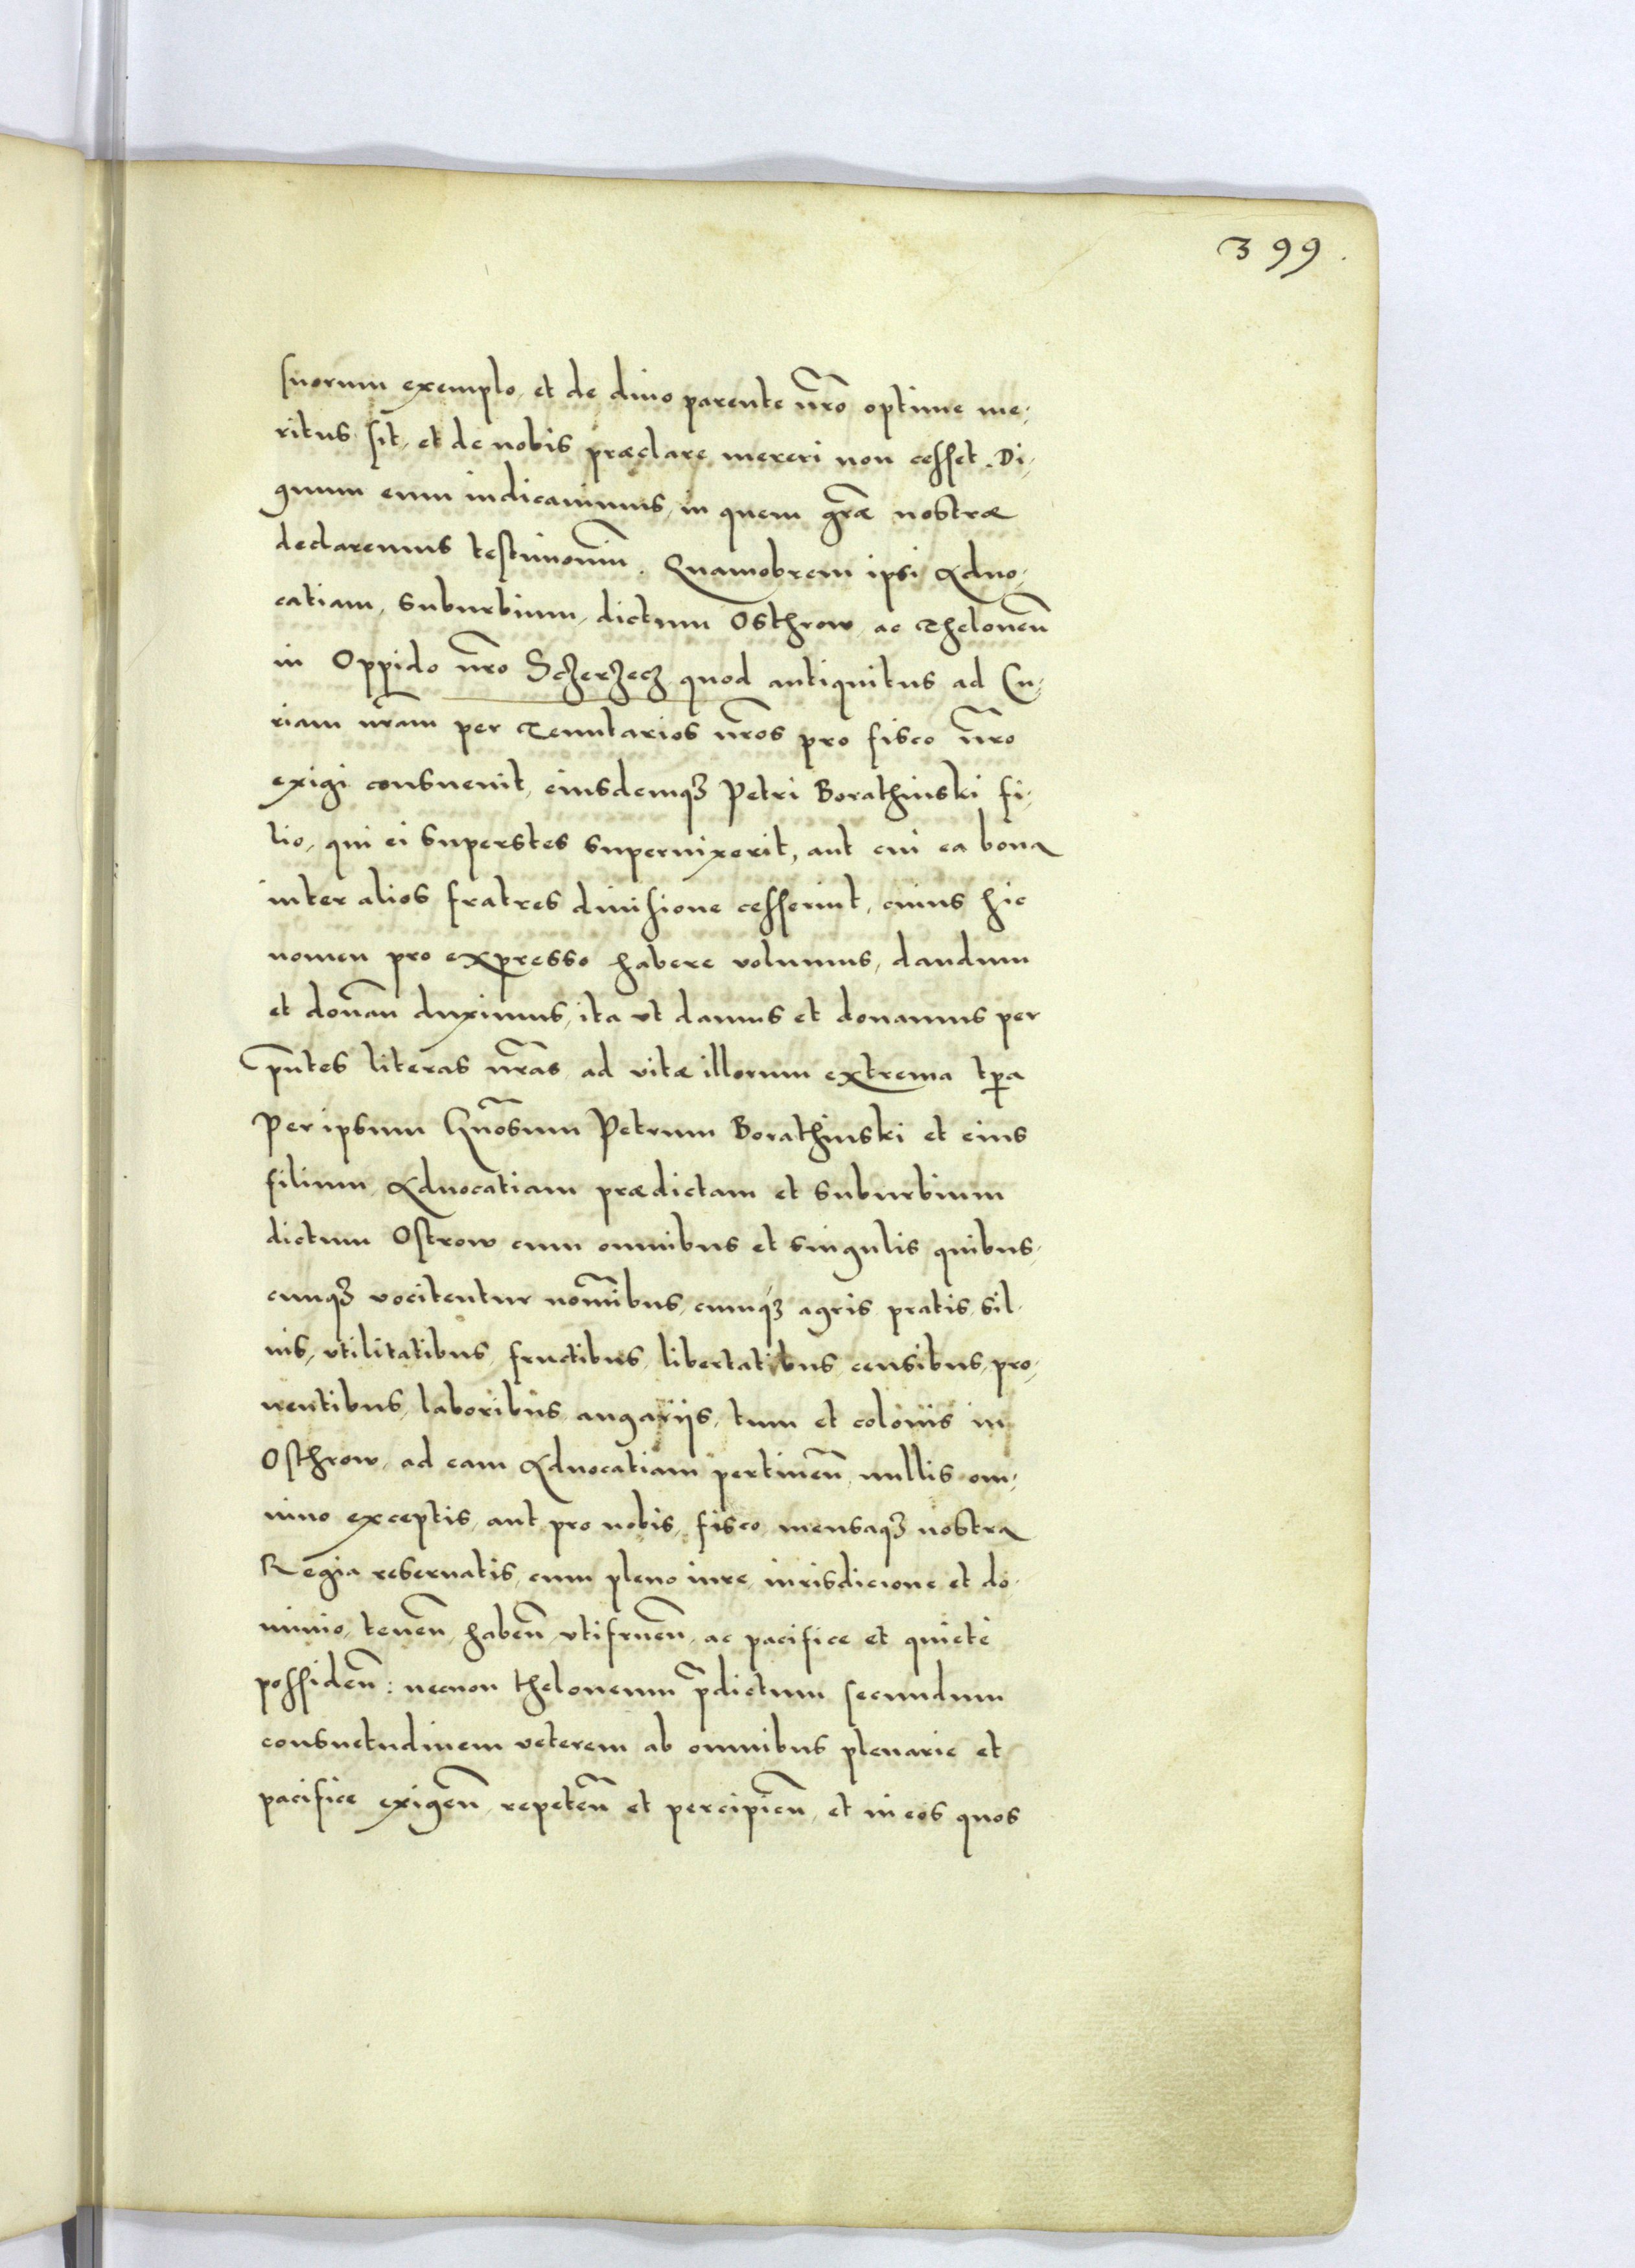 399.
suorum exemplo, et de diuo parente nr̃o optime me-
ritus sit, et de nobis præclare mereri non cesset. Di-
gnum eum iudicauimus, in quem grãe nostræ
declaremus testimoniũ. Quamobrem ipsi Aduo-
catiam, suburbium, dictum Osthrow, ac Theloneũ
in Oppido nr̃o Sczerzecz quod antiquitus ad Cu-
riam nr̃am per Tenutarios nr̃os pro fisco nr̃o
exigi consueuit, eiusdemqꝫ Petri Borathinski fi-
lio, qui ei superstes superuixerit, aut cui ea bona
inter alios fratres diuisione cesserint, cuius hic
nomen pro expresso habere volumus, dandum
et donañ duximus, ita vt damus et donamus per
p̃ntes literas nr̃as ad vitæ illorum extrema tp̃a
Per ipsum Gñosum Petrum Borathinski et eius
filium, Aduocatiam prædictam et suburbium
dictum Ostrow cum omnibus et singulis quibus-
cunqꝫ vocitentur nom̃ibus, cumqꝫ agris pratis, sil-
uis, vtilitatibus, fructibus, libertatibus, censibus, pro-
uentibus, laboribus, angariis, tum et colonis in
Osthrow, ad eam Aduocatiam pertineñ, nullis om-
nino exceptis, aut pro nobis, fisco, mensaqꝫ nostra
Regia reseruatis, cum pleno iure, iurisdicione et do-
minio, teneñ, habeñ, vtifrueñ, ac pacifice et quiete
possideñ: necnon theloneum p̃dictum secundum
consuetudinem veterem ab omnibus plenarie et
pacifice exigeñ, repeteñ et percipieñ, et in eos quos